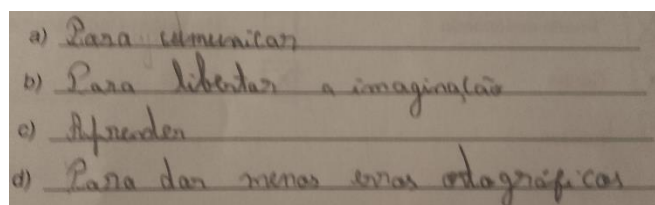 a) Para comunicar
b) Para libertar a imaginação
c) Aprender
d) Para dar menos erros ortográficos